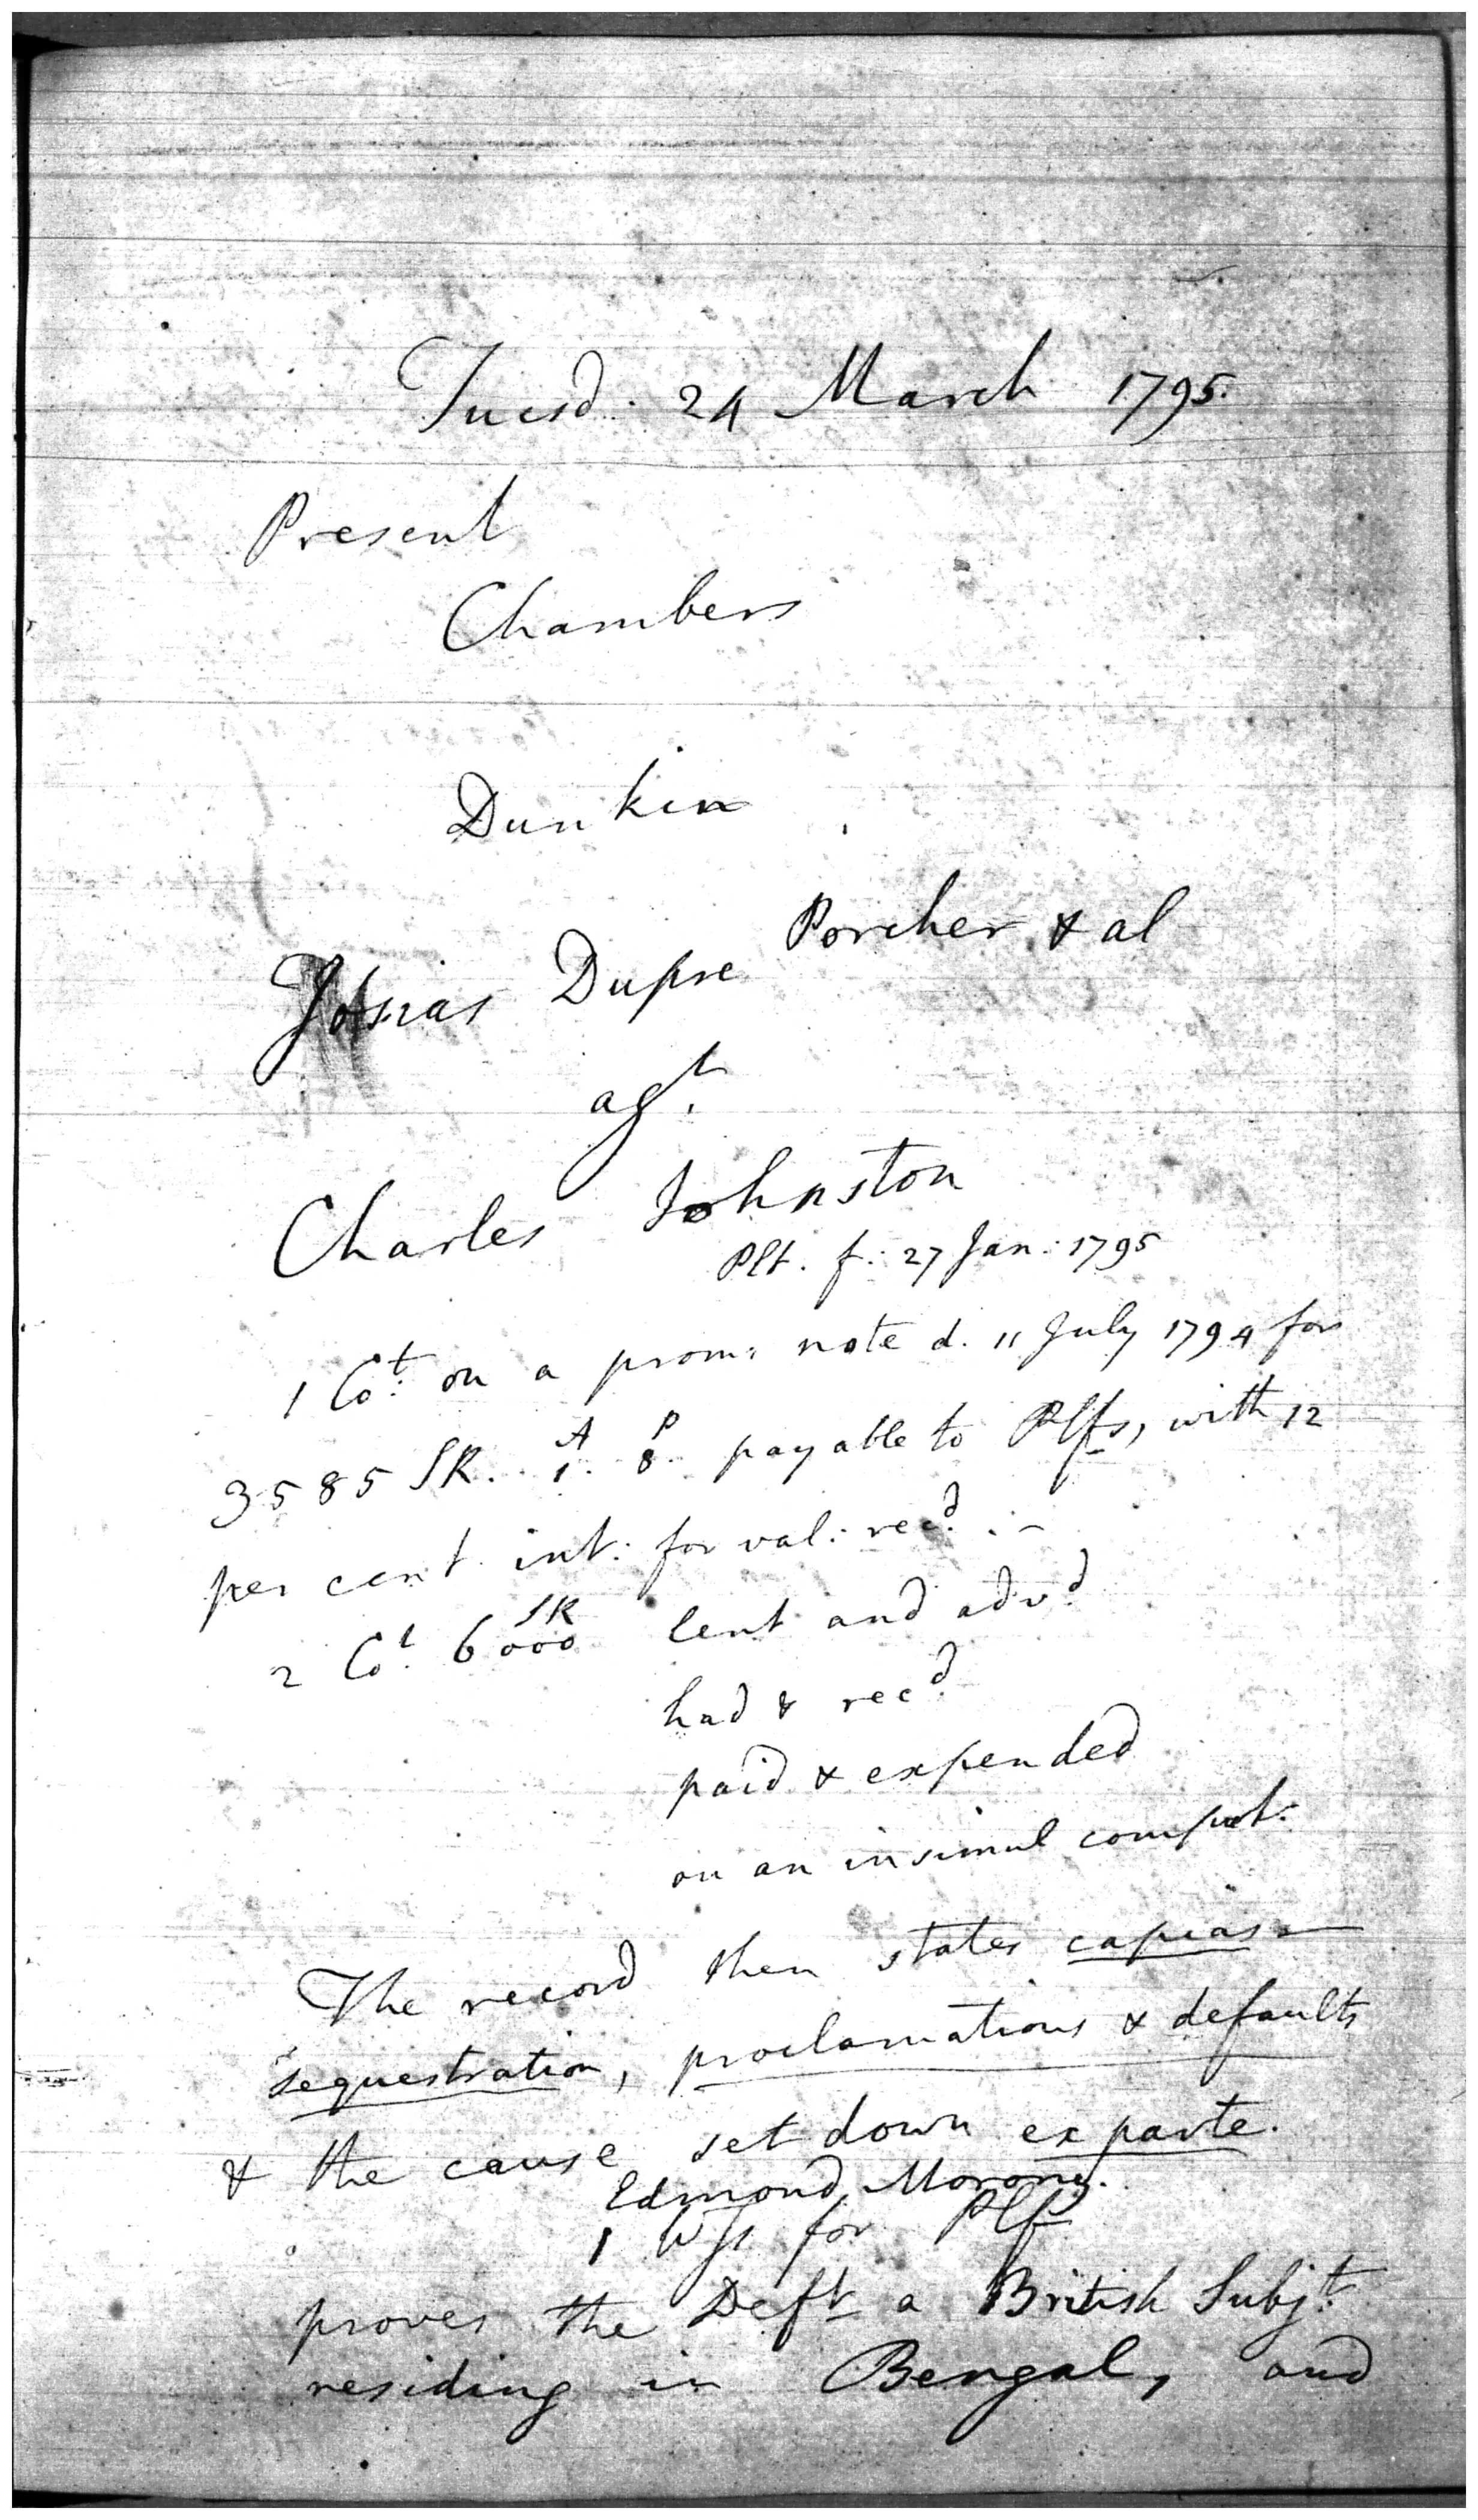 Tuesd. 24 March 1795.
Present
Chambers
Dunkin
Josias Dupre Porcher & al
agt.
Charles Johnston
Plt. f: 27 Jan: 1795
1 Cot: on a prom: note d. 11 July 1794 for
3585 SR. 1. A 8. P payable to Plfs, with 12
per cent int: for val: recd. . -
2 Cot. 6000 SR lent and advd.
had & recd.
paid & expended
on an insimul comput:
The record then states capias -
sequestration, proclamations & defaults
& the cause set down ex parte.
Edmond Morony.
1 Wss for Plf
proves the Deft a British Subjt.
residing in Bengal, and